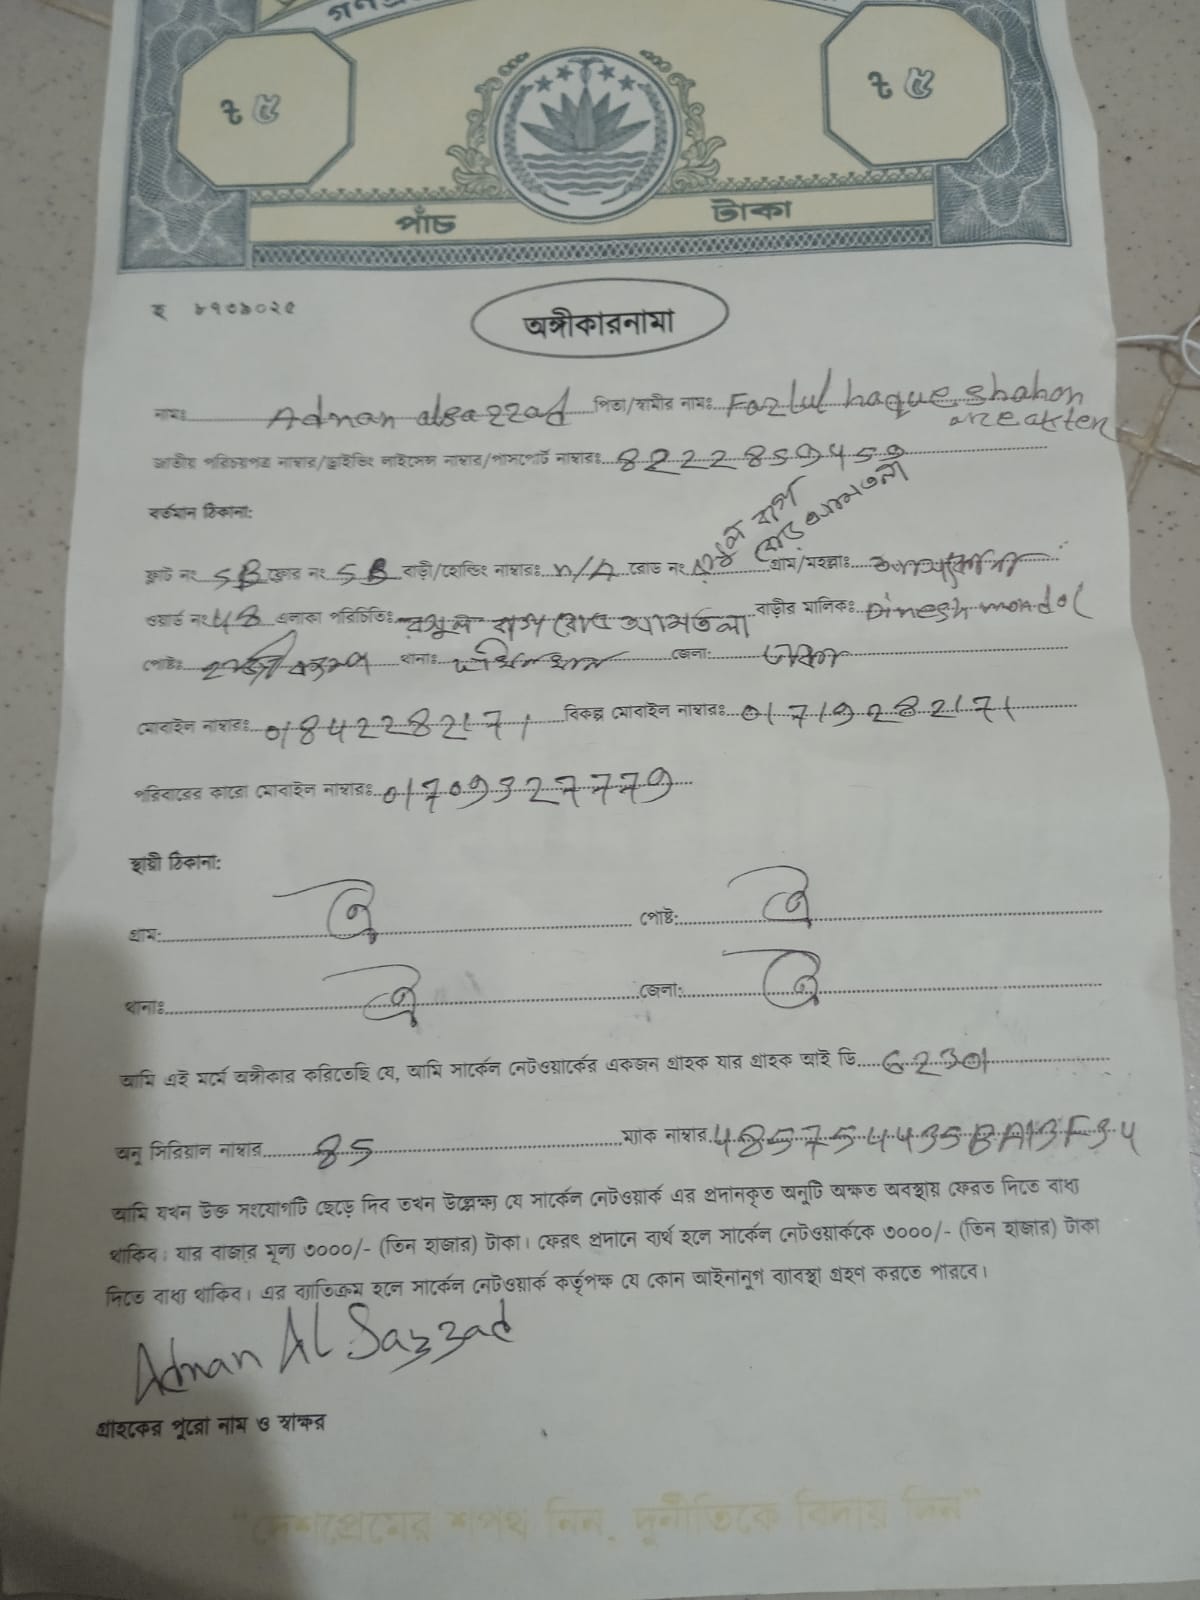 ৳ ৫ ৳ ৫
পাঁচ টাকা
অঙ্গীকারনামা
নামঃ Adnan alsazzad পিতা/স্বামীর নামঃ Fazlul haque shahon
ara akter
জাতীয় পরিচয়পত্র নাম্বার/ড্রাইভিং লাইসেন্স নাম্বার/পাসপোর্ট নাম্বারঃ 8222859459
বর্তমান ঠিকানা:
ফ্লাট নং 5B ফ্লোর নং 5B বাড়ী/হোল্ডিং নাম্বারঃ N/A রোড নং রসুল বাগ রোড আমতলা গ্রাম/মহল্লাঃ
ওয়ার্ড নং 48 এলাকা পরিচিতিঃ রসুল বাগ রোড আমতলা বাড়ীর মালিকঃ Dinesh mondol
পোষ্টঃ থানাঃ দক্ষিনখান জেলা: ঢাকা
মোবাইল নাম্বারঃ 01842282171 বিকল্প মোবাইল নাম্বারঃ 01719282171
পরিবারের কারো মোবাইল নাম্বারঃ 01709327779
স্থায়ী ঠিকানা:
গ্রাম: ঐ পোষ্ট: ঐ
থানাঃ ঐ জেলা: ঐ
আমি এই মর্মে অঙ্গীকার করিতেছি যে, আমি সার্কেল নেটওয়ার্কের একজন গ্রাহক যার গ্রাহক আই ডি 62301
অনু সিরিয়াল নাম্বার 85 ম্যাক নাম্বার 485754435BA13F34
আমি যখন উক্ত সংযোগটি ছেড়ে দিব তখন উল্লেক্ষ্য যে সার্কেল নেটওয়ার্ক এর প্রদানকৃত অনুটি অক্ষত অবস্থায় ফেরত দিতে বাধ্য
থাকিব। যার বাজার মূল্য ৩০০০/- (তিন হাজার) টাকা। ফেরৎ প্রদানে ব্যর্থ হলে সার্কেল নেটওয়ার্ককে ৩০০০/- (তিন হাজার) টাকা
দিতে বাধ্য থাকিব। এর ব্যাতিক্রম হলে সার্কেল নেটওয়ার্ক কর্তৃপক্ষ যে কোন আইনানুগ ব্যাবস্থা গ্রহণ করতে পারবে।
Adnan Al Sazzad
গ্রাহকের পুরো নাম ও স্বাক্ষর
"দেশপ্রেমের শপথ নিন, দুর্নীতিকে বিদায় দিন"